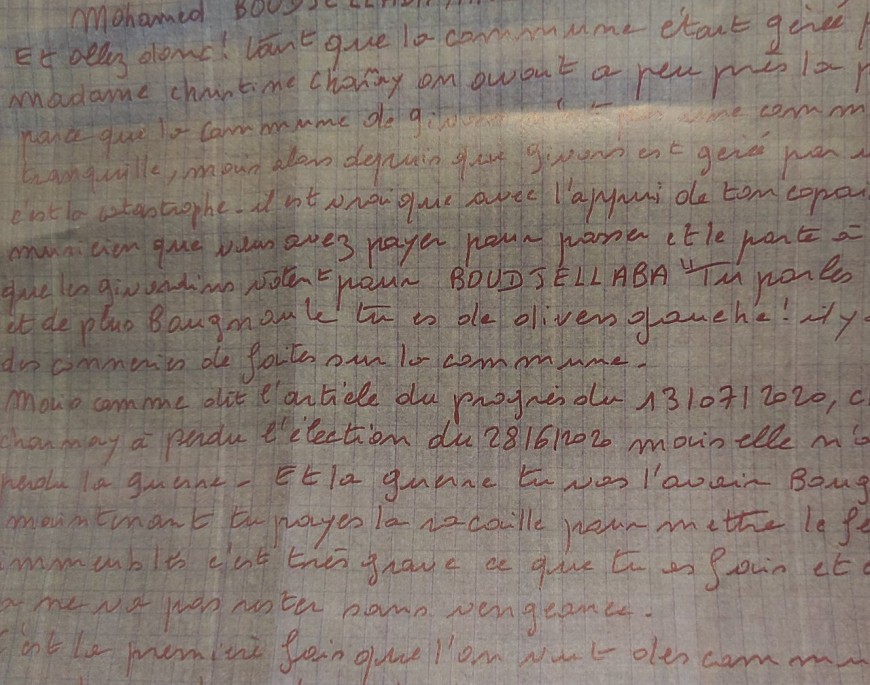 Mohamed BOUDJELLABA
Et allez donc! tant que la commmune étant gérée
madame christine charnay on avait a peu près la
parce que la commmune de comm
tranquille, mais alors depuis que givors est gérée par
c'est la catastrophe. il est vrai que avec l'appui de ton copai
municien que vous avez payer pour passer et le porte à
que les givordins votent pour BOUDJELLABA" Tu parles
et de plus Bougnoule tu es de divers gauche! il y
des conneries de faites sur la commmune.
Mais comme dit l'article du progrès du 13/07/2020, c
charnay à perdu l'élection du 28/6/2020 mais elle n'a
perdu la guerre. Et la guerre tu vas l'avoir Boug
maintenant tu payes la racaille pour mettre le fe
immeubles c'est très grave ce que tu as fais et
a me va pas rester sans vengeance.
c'est la première fois que l'on veut des commm